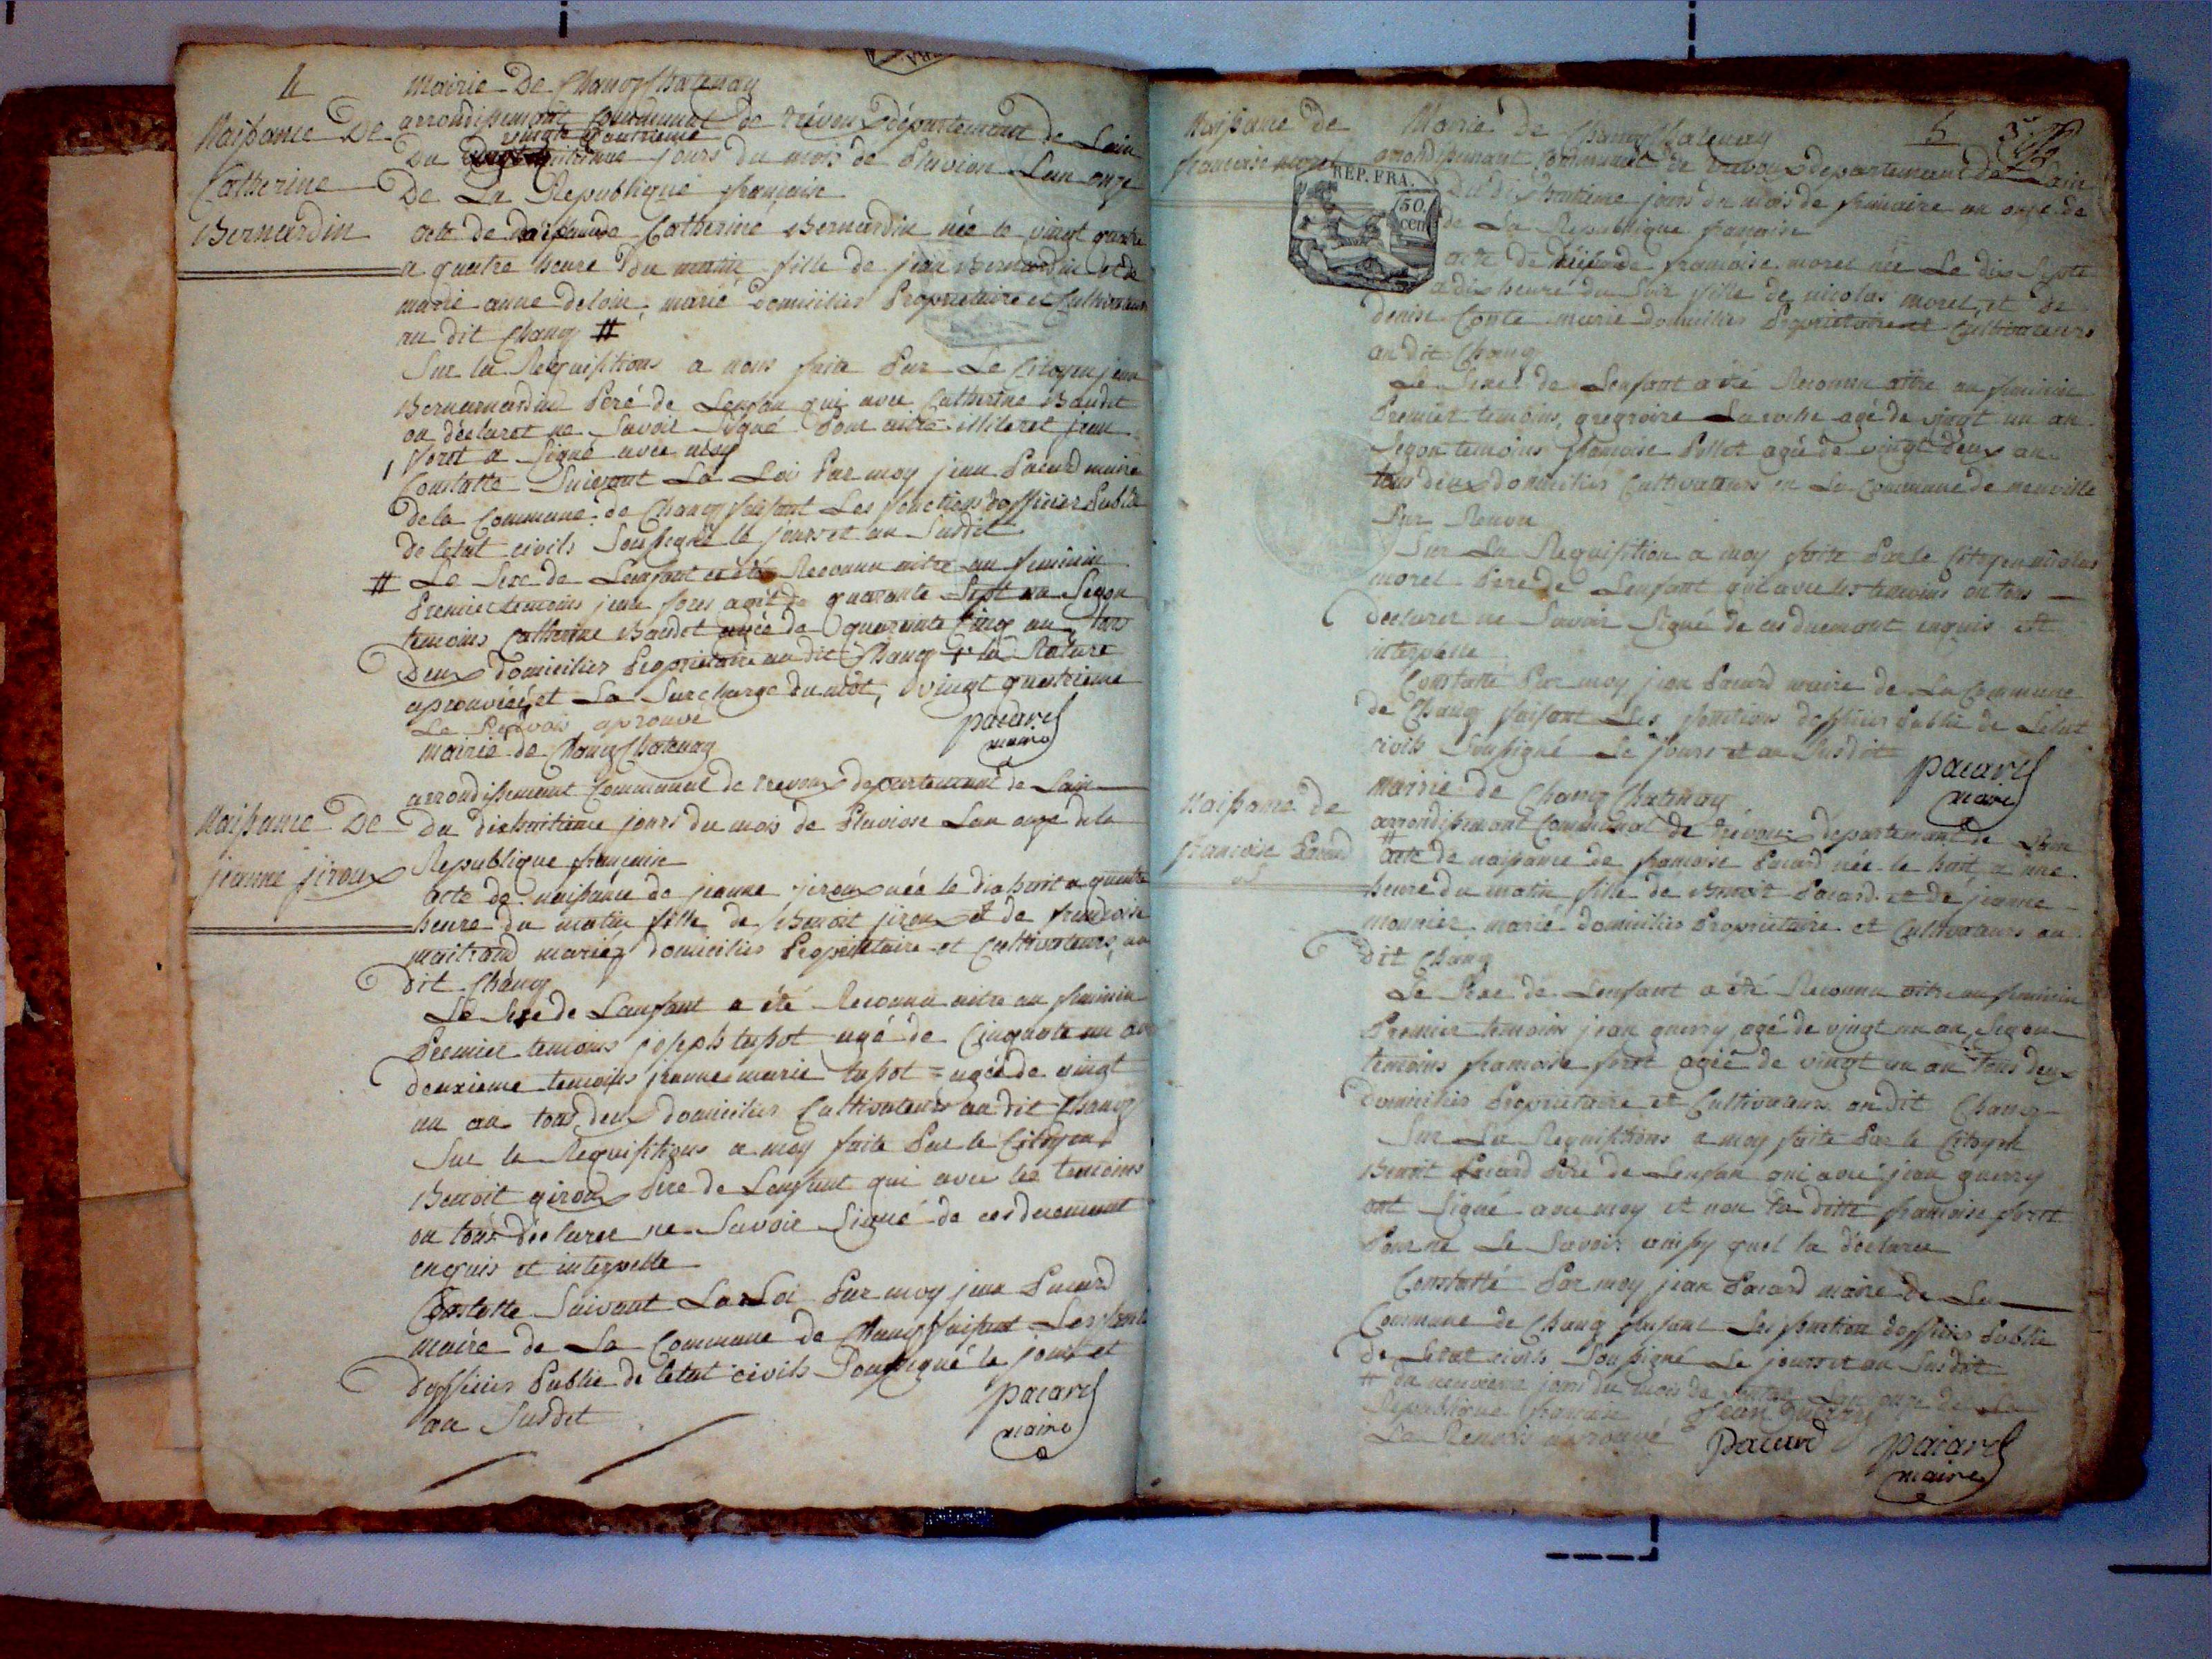 4
Mairie De Chanoz Chatenay
Naissance De
Catherine
Bernardin
arrondissement Communal de trévoux département de Lain
vingt quatrieme
Du jours du mois de Pluviose Lan onze
De La Republique française
acte de naissance de Catherine Bernardin née le vingt quatre
a quatre heure du matin fille de jean Bernardin et de
marie anne deloin marié domicilies Propriétaire et Cultivateurs
au dit Chanoz #
Sur la Requisitions a nous faite Par Le Citoyen jean
Bernarnardin Peré de Lenfan qui avec Catherine Baudet
on déclaret ne Savoir Signé Pour autre illiteret jean
foret a Signé avec moy
Constatte Suivant La Loi Par moy jean Pacard maire
de la Commune de Chanoz faisant Les fonctions dofficier Public
de letat civils Soussigné le jours et an Susdit
# Le Sexe de Lenfant a été Reconnu aitre au feminin
Premier temoins jean forez agét de quarante Sept an Segon
temoins Catherine Baudet agée de quarante Cinq an tous
Deux Domicilies Propriétaire au dit Chanoz la Rature
aprouvéé et La Surcharge du mot, vingt quatrieme
Le Renvois aprouvé
pacard
maire
mairie de Chanoz Chatenay
arrondissement Communal de trevoux departement de Lain
Naissance De
jeanne jiroux
Du dixhuitieme jours du mois de Pluviose Lan onze de la
Republique française
acte de naissance de jeanne jiroux née le dix huit a quatre
heure du matin fille de Benoit jiroux et de francoise
maitrand mariez domicilies Propriétaire et Cultivateurs au
dit Chanoz
Le Sexe de Lanfant a été Reconnu aitre au feminin
Premier temoins joseph tupot agé de Cinquante un an
deuxieme temoins jeanne marie tupot = agée de vingt
un an tous deux domicilies Cultivateurs au dit Chanoz
Sur la Requisitions a moy faite Par le Citoyen
Benoit giroux Pere de Lenfant qui avec les temoins
on tous déclaree ne Savoir Signé de ces duement
enquis et interpelle
Constatte Suivant La Loi Par moy jean Pacard
maire de La Commune de Chanoz faisant Les fonct
dofficier Public de letat civils Soussigné le jours et
an Susdit
pacard
maire
5
Naissance de
francoise morel
REP. FRA.
50.
cen
Mairie de Chanoz Chatenay
arrondissement Communal de trevoux departement de Lain
Du dixhuitieme jours du mois de frimaire an onze de
de La Republique francaise
acte de francoise morel née Le dix Septe
a dix heure du Soir fille de nicolas morel et de
denise Conte marie domicilies Proprietaire et Cultivateurs
au dit Chanoz
Le Sexe de Lenfant a été Reconnu aitre au feminin
Premier temoins, gregroire Laroche agé de vingt un an
Segon temoins francoise Pellet agée de vingt deux an
tous deux domicilies Cultivateurs en La Commune de neuville
Sur Renon
Sur La Requisition a moy faite Par le Citoyen nicolas
morel Pere de Lenfant qui avec les temoins on tous
declarer ne Savoir Signé de ces duement enquis et
interpelle
Constatté Par moy jean Pacard maire de La Commune
de Chanoz faisant Les fonctions dofficier Public de Letat
civils Soussigné Le jours et an Susdit
pacard
maire
Naissance de
francoise Pacard
mairie de Chanoz Chatenay
arrondissement Communal de trévoux departement de Lain
# acte de naissance de francoise Pacard née le huit a une
heure du matin fille de Benoit Pacard et de jeanne
mounier marié domicilies Proprietaire et Cultivateurs au
dit Chanoz
Le Sexe de Lenfant a été Reconnu aitre au feminin
Premier temoins jean guerry agé de vingt un an Segon
temoins francoise foret agée de vingt un an tous deux
Domicilies Proprietaire et Cultivateurs au dit Chanoz
Sur La Requisitions a moy faite Par le Citoyen
Benoit Pacard Pere de Lenfan qui avec jean guerry
ont Signé avec moy et non la ditte francoise foret
Pour ne Le Savoir ainssy quel la déclaree
Constatté Par moy jean Pacard maire de La
Commune de Chanoz faisant Les fonction dofficier Public
de Letat civils Soussigné Le jours et an Susdit
# Du neuvieme jours du mois de Lan onze de La
Republique francaise jean guerry
Le Renvois aprouvé pacard pacard
maire